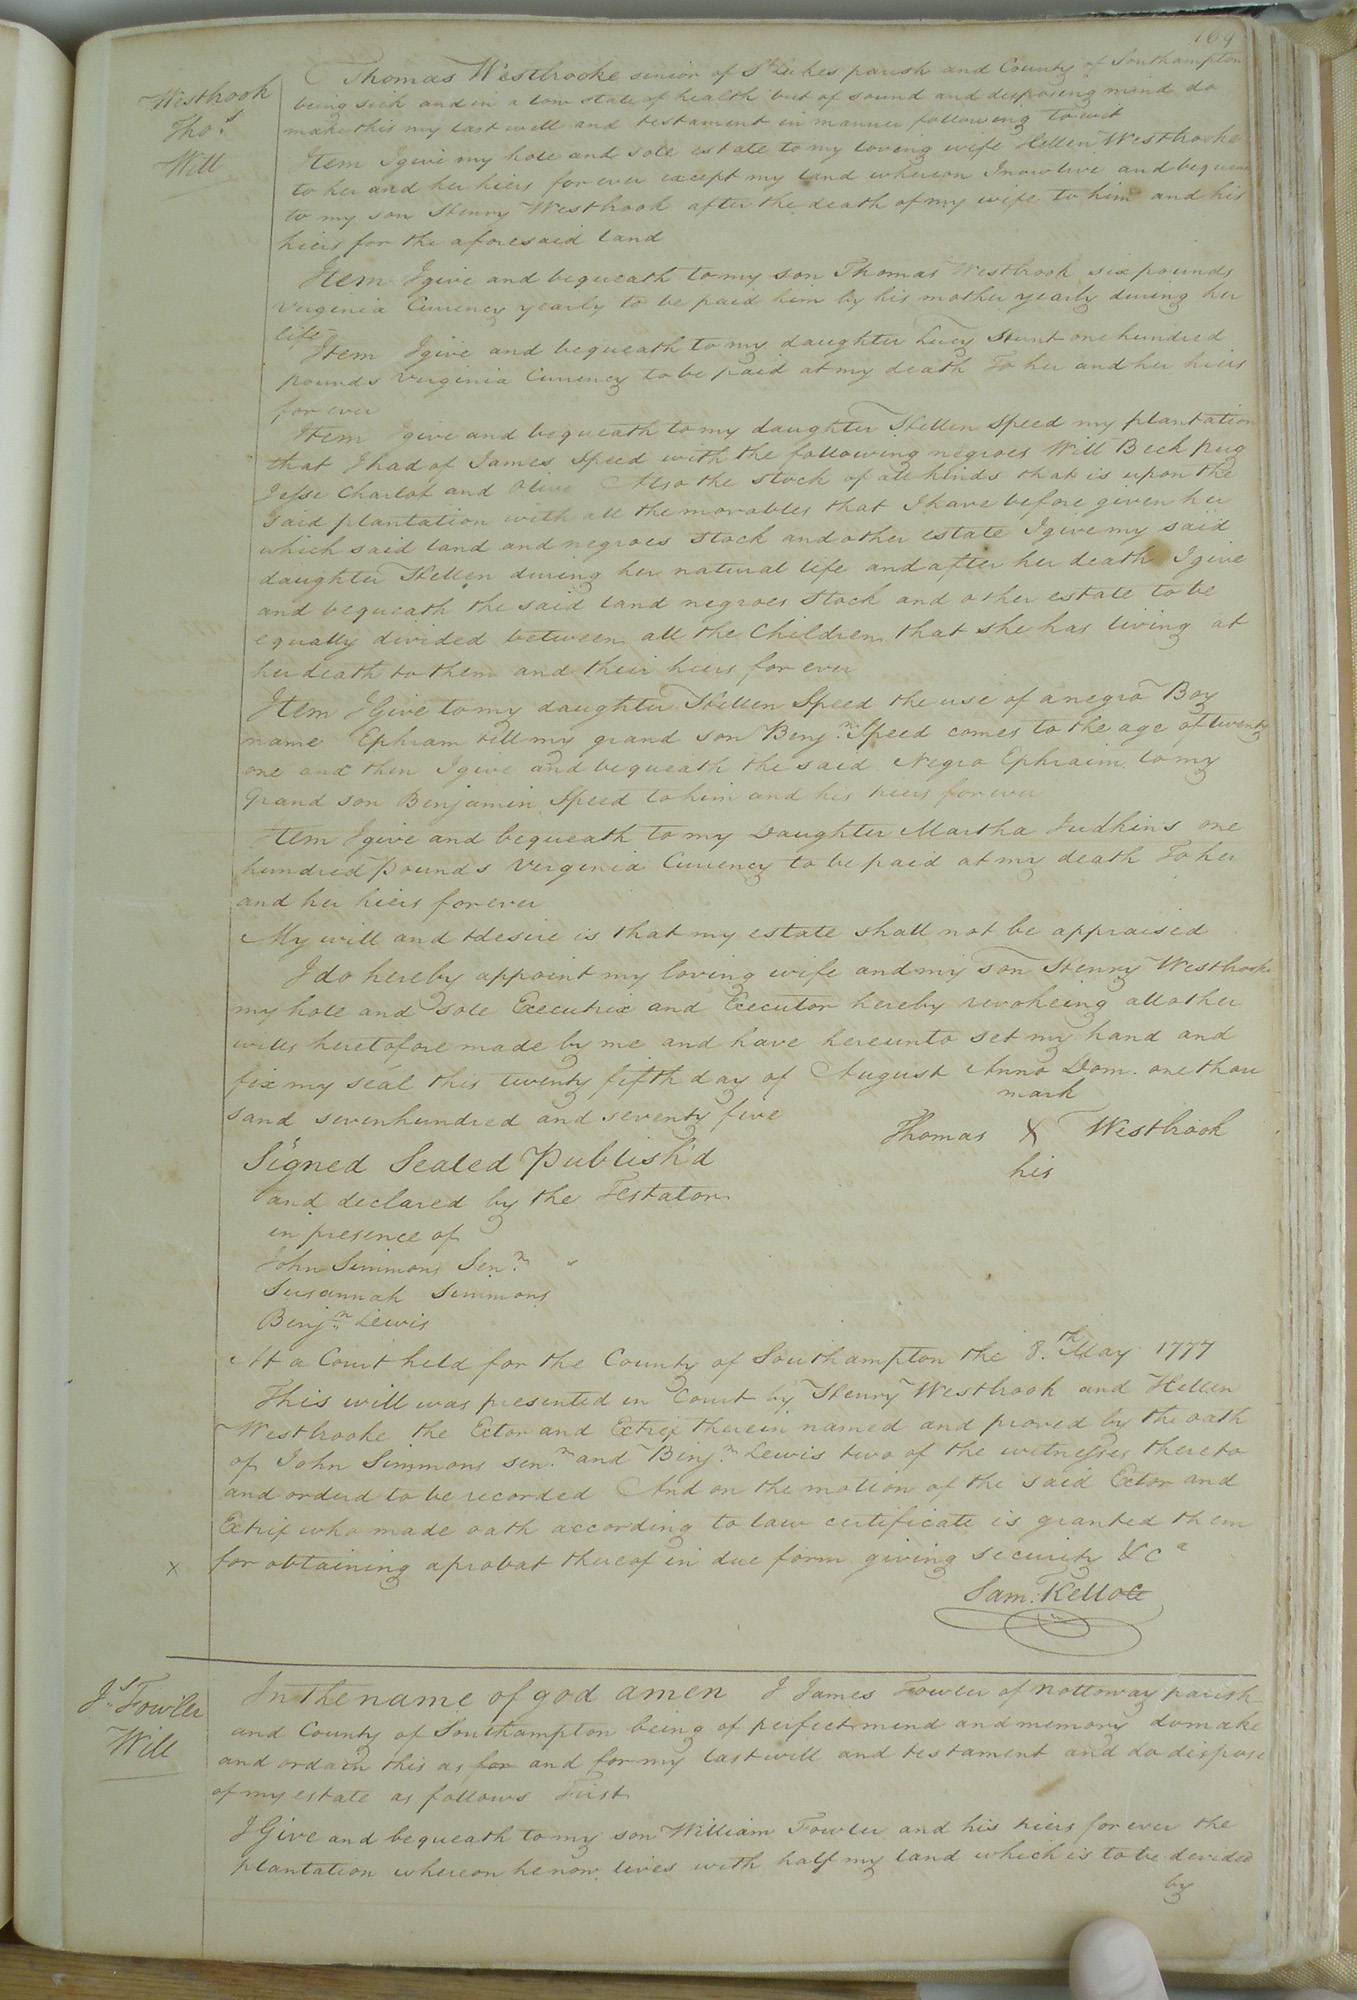 169
Westbrook
Thos
Will
Thomas Westbrooke senior of St Lukes parish and County of Southampton
being sick and in a low state of health but of sound and disposing mind do
make this my last will and testament in manner following to wit
Item I give my hole and sole estate to my loving wife Hellen Westbrooke
to her and her hiers for ever except my land whereon I now live and bequeath
to my son Henry Westbrook after the death of my wife to him and his
hiers for the aforesaid land
Item I give and bequeath to my son Thomas Westbrook six pounds
Verginia Currency yearly to be paid him by his mother yearly during her
life
Item I give and bequeath to my daughter Lucy Hunt one hundred
pounds Verginia Currency to be paid at my death To her and her hiers
for ever
Item I give and bequeath to my daughter Hellen Speed my plantation
that I had of James Speed with the following negroes Will Beck Pug
Jesse Charlot and Olive Also the stock of all kinds that is upon the
said plantation with all the movables that I have before given her
which said land and negroes Stock and other estate I give my said
daughter Hellen during her natural life and after her death I give
and bequeath the said land negroes Stock and other estate to be
equally divided between all the Children that she has living at
her death to them and their hiers for ever
Item I Give to my daughter Hellen Speed the use of a negro Boy
name Ephram till my grand son Benjn Speed comes to the age of twenty
one and then I give and bequeath the said Negro Ephraim to my
Grand son Benjamin Speed to him and his hiers for ever
Item I give and bequeath to my Daughter Martha Judkins one
hundred Pounds Verginia Currency to be paid at my death To her
and her hiers for ever
My will and desire is that my estate shall not be appraised
I do hereby appoint my loving wife and my son Henry Westbrooke
my hole and sole Executrix and Executor hereby revokeing all other
wills heretofore made by me and have hereunto set my hand and
fix my seal this twenty fifth day of August Anno Dom. one thou
sand seven hundred and seventy five
mark
Thomas X Westbrook
his
Signed Sealed Publish'd
and declared by the Testator
in presence of
John Simmons Senr
Susannah Simmons
Benjn Lewis
At a Court held for the County of Southampton the 8th May 1777
This will was presented in Court by Henry Westbrook and Hellen
Westbrooke the Exctor and Extrix therein named and proved by the oath
of John Simmons senr and Benjn Lewis two of the witnesses thereto
and orderd to be recorded And on the motion of the said Exctor and
Extrix who made oath according to law certificate is granted them
x for obtaining a probat thereof in due form giving security &ca
Sam. Kello
Js Fowler
Will
In the name of god amen I James Fowler of Nottoway parish
and County of Southampton being of perfect mind and memory do make
and ordain this as for and for my last will and testament and do dispose
of my estate as follows First
I Give and bequeath to my son William Fowler and his hiers for ever the
plantation whereon he now lives with half my land which is to be devided
by